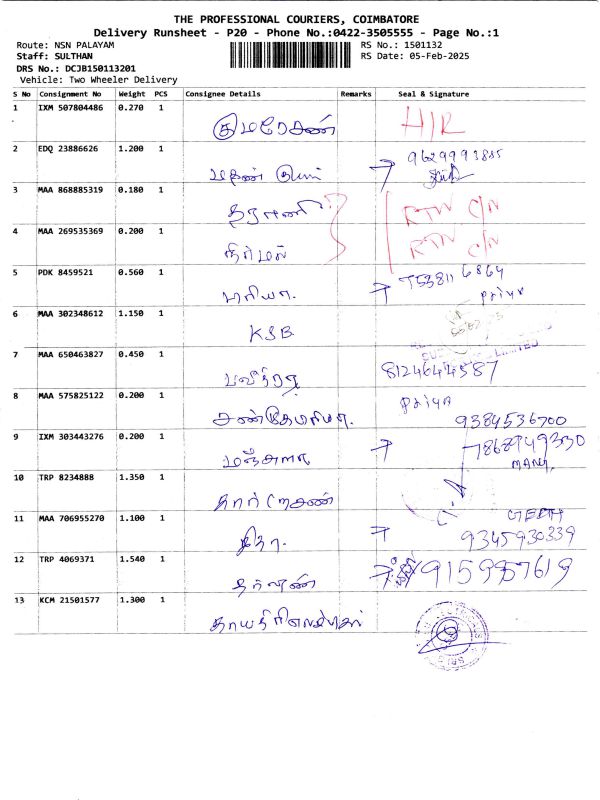 THE PROFESSIONAL COURIERS, COIMBATORE
Delivery Runsheet - P20 - Phone No.:0422-3505555 - Page No.:1
Route: NSN PALAYAM RS No.: 1501132
Staff: SULTHAN RS Date: 05-Feb-2025
DRS No.: DCJB150113201
Vehicle: Two Wheeler Delivery
S No Consignment No Weight PCS Consignee Details Remarks Seal & Signature
1 IXM 507804486 0.270 1
குமரேசன் H/R
2 EDQ 23886626 1.200 1 9629993885
3 MAA 868885319 0.180 1
தரணி RTN C/N
4 MAA 269535369 0.200 1 RTN C/N
நிர்மல்
5 PDK 8459521 0.560 1 6864
பரியா. Priya
6 MAA 302348612 1.150 1
KSB LIMITED
7 MAA 650463827 0.450 1 8124644587
8 MAA 575825122 0.200 1 Priya
9384536700
9 IXM 303443276 0.200 1 7868949330
மஞ்சுளா
10 TRP 8234888 1.350 1
11 MAA 706955270 1.100 1
9345930339
12 TRP 4069371 1.540 1 9159957619
13 KCM 21501577 1.300 1